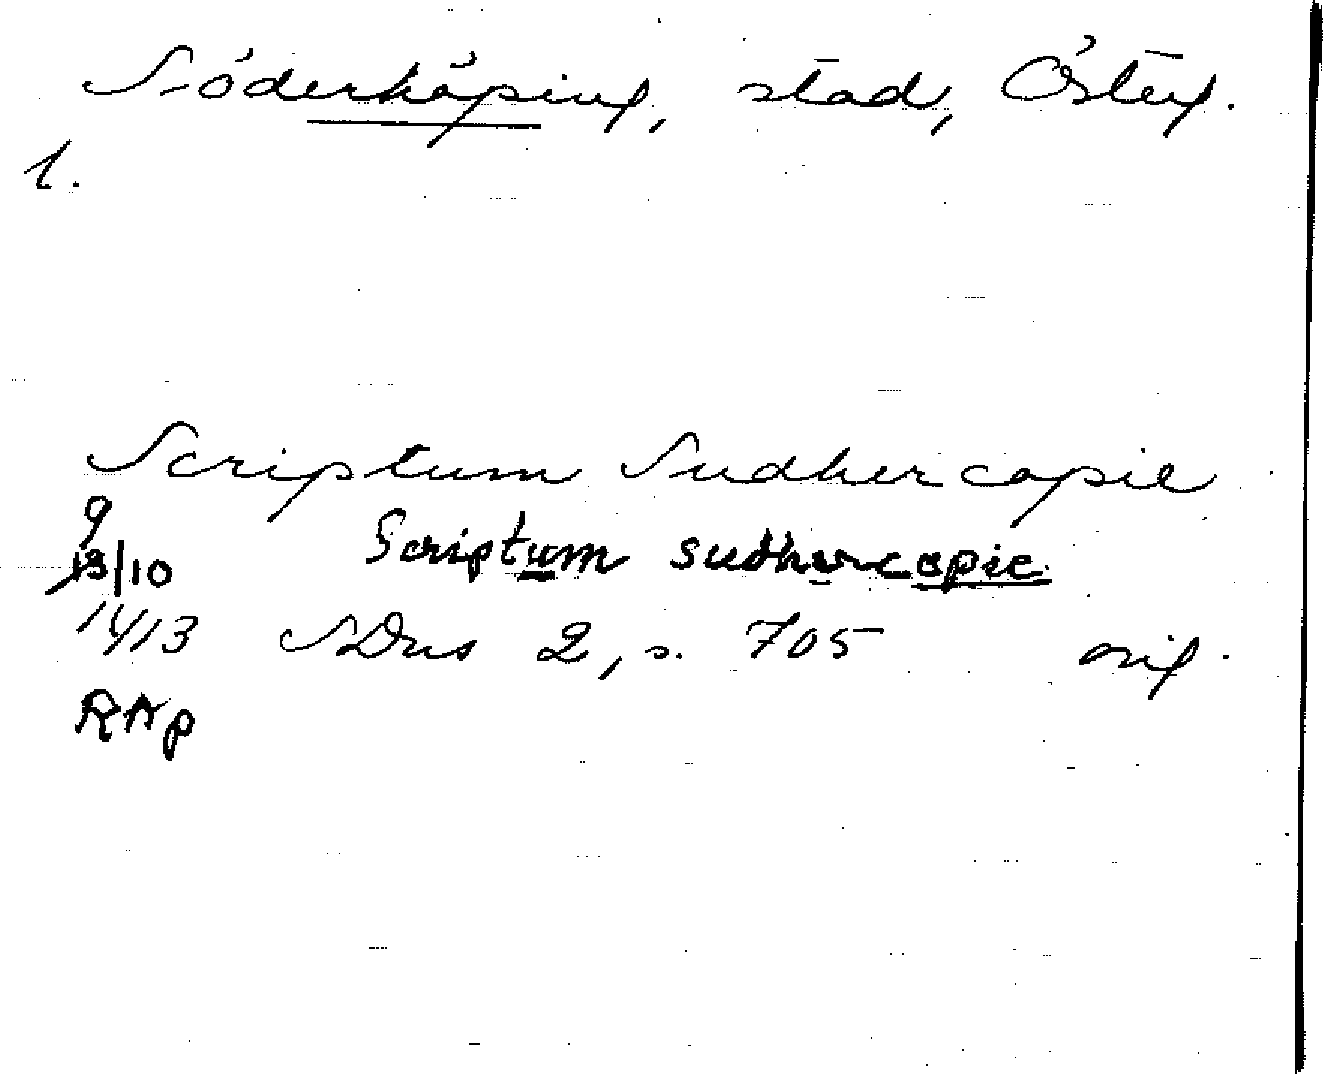 Söderköping, stad, Österg.
1.
Scriptum Sudhercopie
9
13/10 Scriptum sudhercopie
1413 SDns 2, s. 705 orig.
RAp